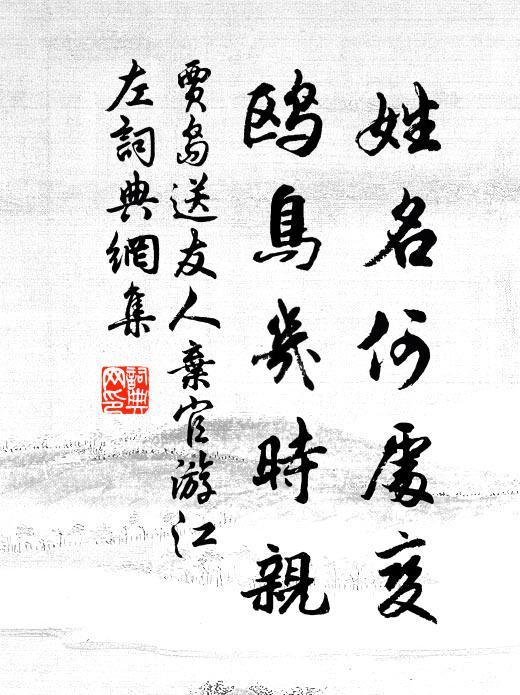 姓名何處变
鸥鳥幾時親
賈島送友人棄官游江
左詞典網集
詞典网印